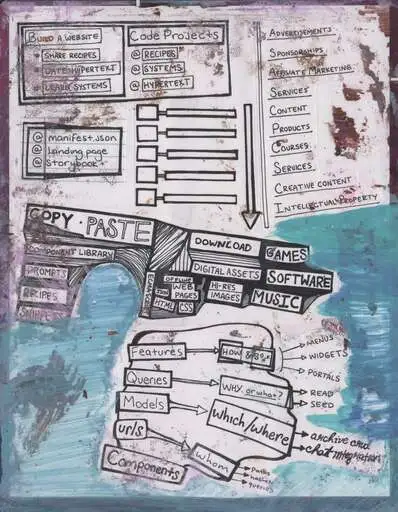 Build a website
Share Recipes
Learn Systems
Code Projects
@ Recipes
@ Systems
@ Hypertext
@ manifest.json
@ Landing page
@ Storybook
Advertisements
Sponsorships
Affiliate Marketing
Services
Content
Products
Courses
Services
Creative Content
Intellectual Property
COPY · PASTE
COMPONENT LIBRARY
PROMPTS
RECIPES
DOWNLOAD
GAMES
DIGITAL ASSETS
SOFTWARE
OFFLINE
WEB PAGES
HI-RES IMAGES
MUSIC
JSON
HTML
CSS
Features
How
MENUS
WIDGETS
PORTALS
Queries
WHY or what?
READ
SEED
Models
which/where
archive and
chat integration
urls
whom
paths
hashes
queries
Components